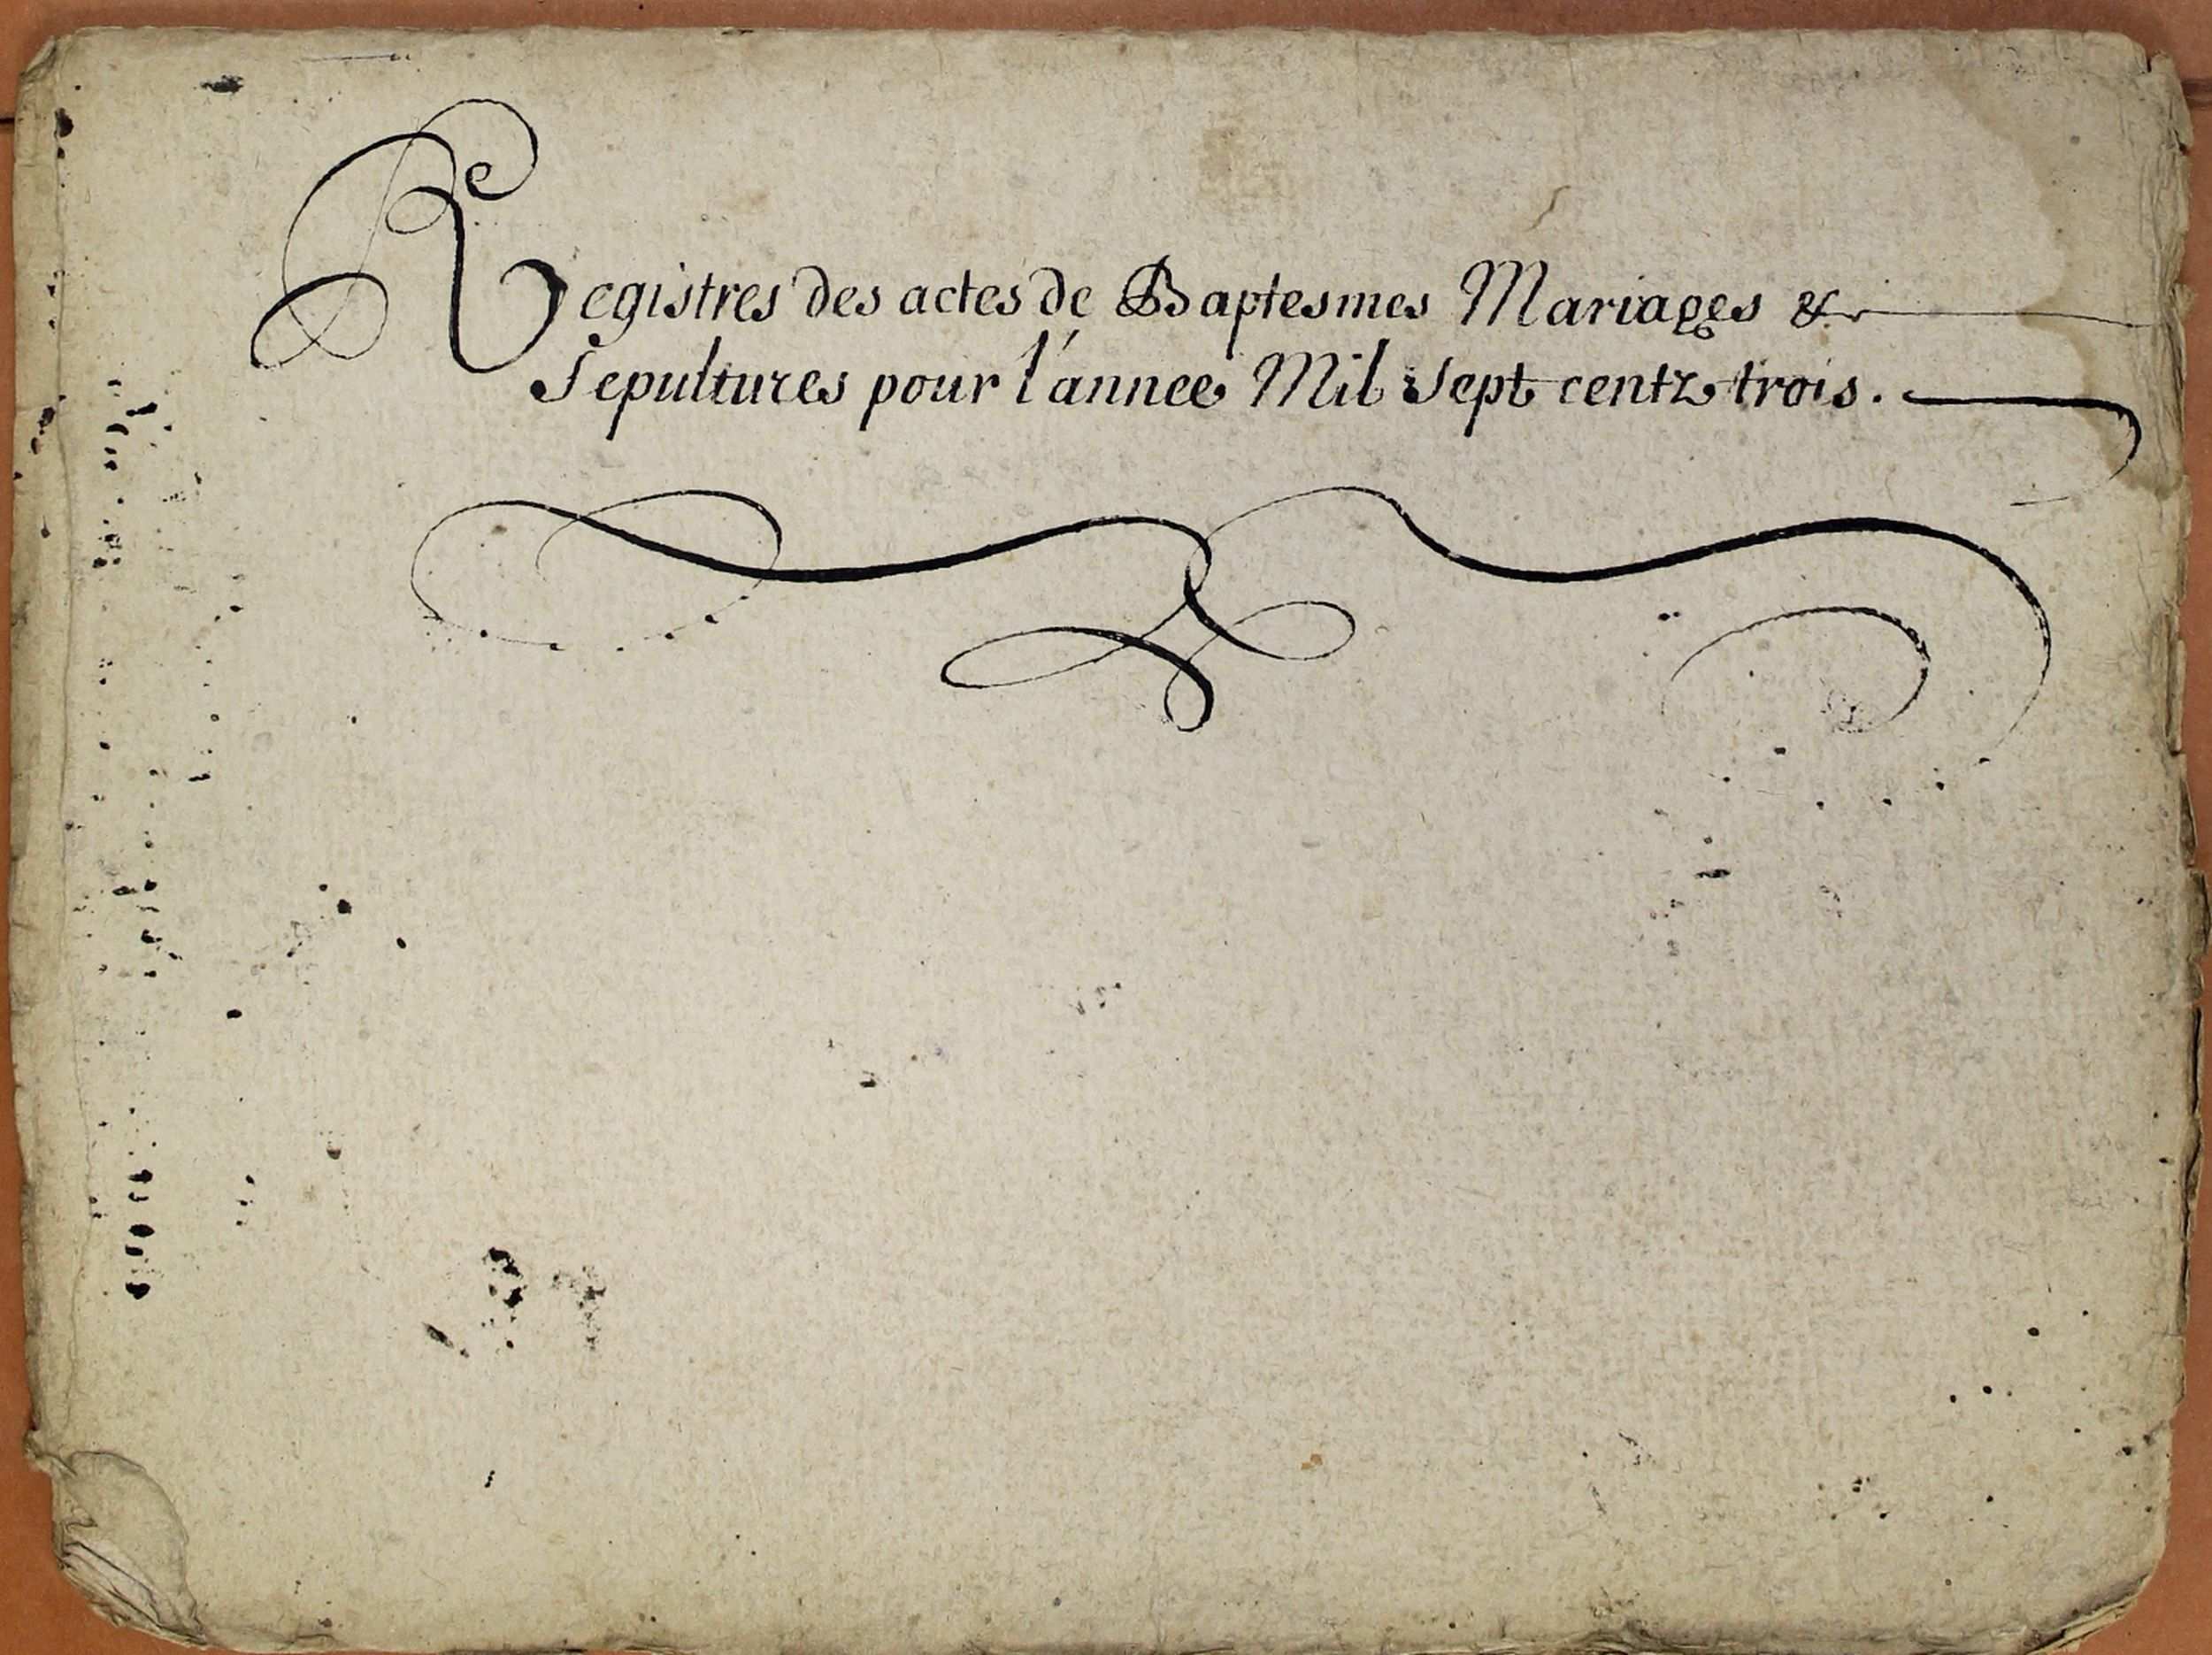 Registres des actes de Baptesmes Mariages &
Sepultures pour l'annee Mil sept centz trois.